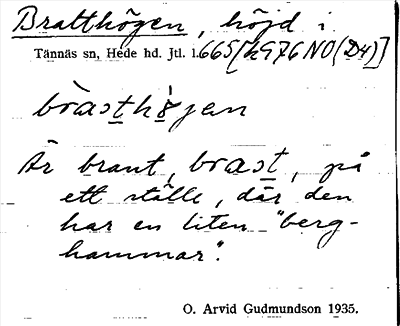 Bratthögen, höjd i
Tännäs sn, Hede hd. Jtl. l. 665[h976NO(D4)]
Är brant, brast, på
ett ställe, där den
har en liten "berg-
hammar".
O. Arvid Gudmundson 1935.